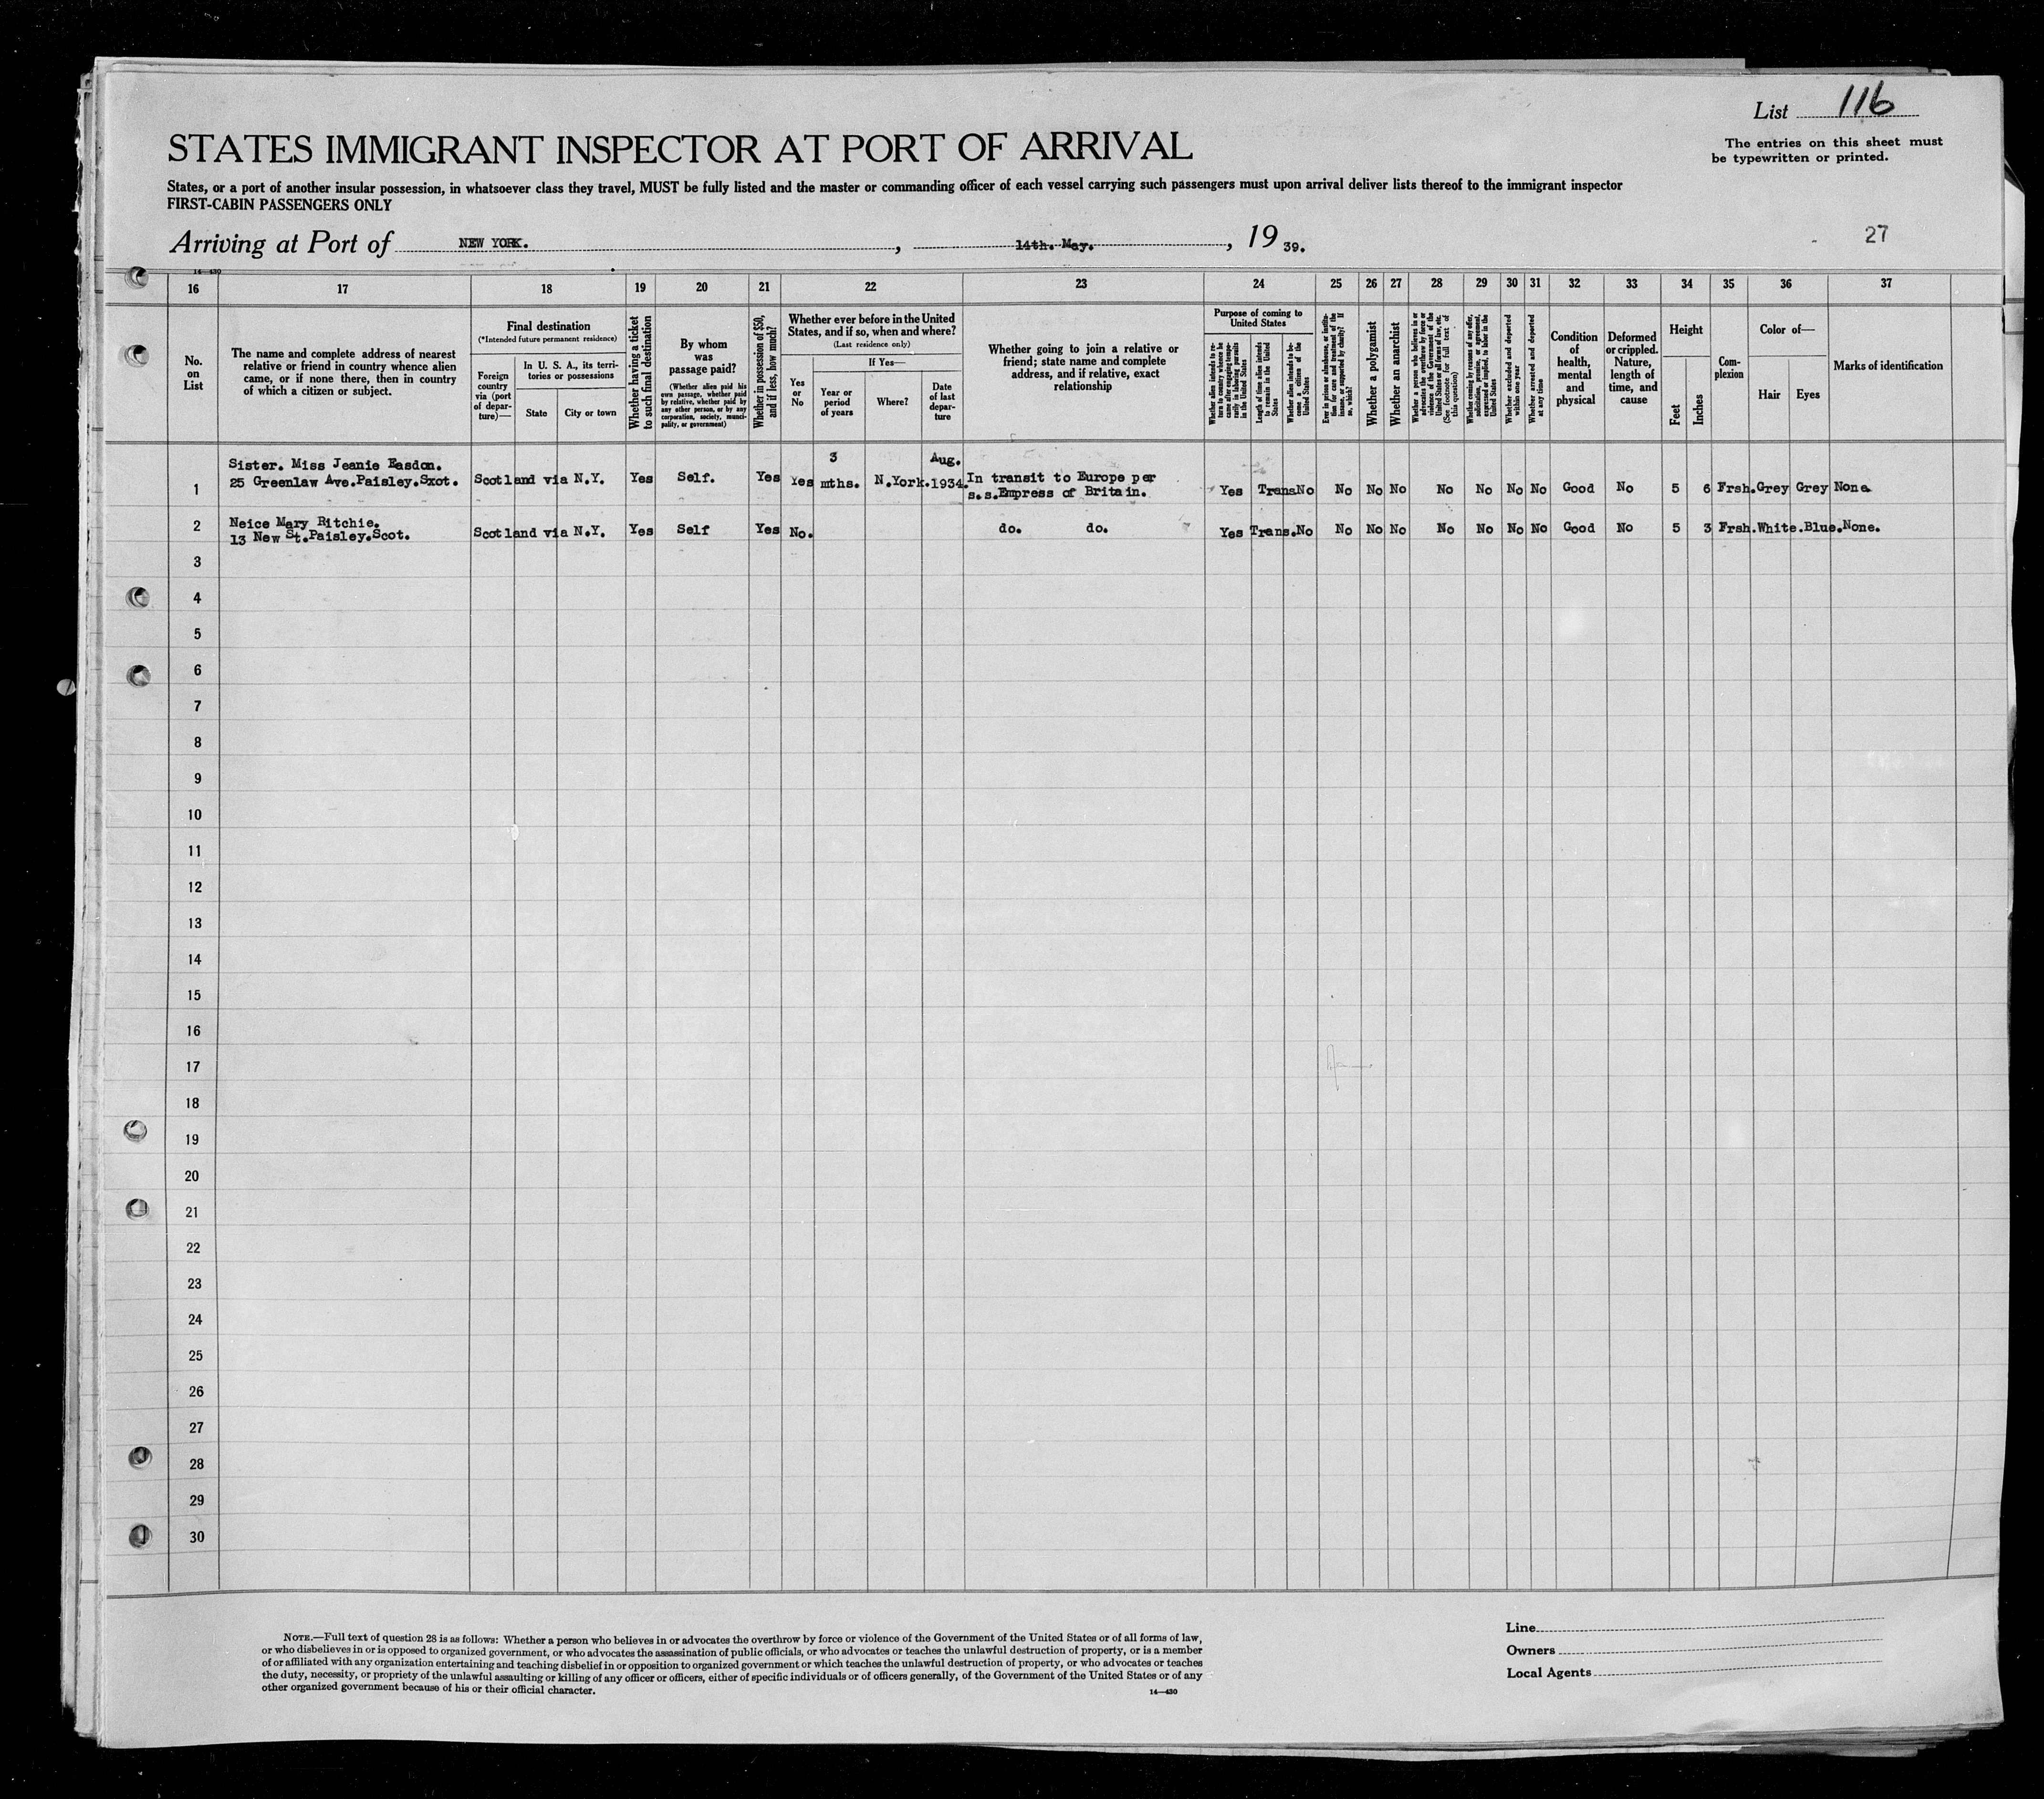 List 116
The entries on this sheet must
be typewritten or printed.
STATES IMMIGRANT INSPECTOR AT PORT OF ARRIVAL
States, or a port of another insular possession, in whatsoever class they travel, MUST be fully listed and the master or commanding officer of each vessel carrying such passengers must upon arrival deliver lists thereof to the immigrant inspector
FIRST-CABIN PASSENGERS ONLY
Arriving at Port of NEW YORK. , 14th. May. , 19 39.
27
14—430
16 17 18 19 20 21 22 23 24 25 26 27 28 29 30 31 32 33 34 35 36 37
No.
on
List
The name and complete address of nearest
relative or friend in country whence alien
came, or if none there, then in country
of which a citizen or subject.
Final destination
(*Intended future permanent residence)
Foreign
country
via (port
of depar-
ture)—
In U. S. A., its terri-
tories or possessions
State
City or town
Whether having a ticket
to such final destination
By whom
was
passage paid?
(Whether alien paid his
own passage, whether paid
by relative, whether paid by
any other person, or by any
corporation, society, munici-
pality, or government)
Whether in possession of $50,
and if less, how much?
Whether ever before in the United
States, and if so, when and where?
(Last residence only)
Yes
or
No
If Yes—
Year or
period
of years
Where?
Date
of last
depar-
ture
Whether going to join a relative or
friend; state name and complete
address, and if relative, exact
relationship
Purpose of coming to
United States
Whether alien intends to re-
turn to country whence he
came after engaging tempo-
rarily in laboring pursuits
in the United States
Length of time alien intends
to remain in the United
States
Whether alien intends to be-
come a citizen of the
United States
Ever in prison or almshouse, or institu-
tion for care and treatment of the
insane, or supported by charity? If
so, which?
Whether a polygamist
Whether an anarchist
Whether a person who believes in or
advocates the overthrow by force or
violence of the Government of the
United States or all forms of law, etc.
(See footnote for full text of
this question)
Whether coming by reasons of any offer,
solicitation, promise, or agreement,
expressed or implied, to labor in the
United States
Whether excluded and deported
within one year
Whether arrested and deported
at any time
Condition
of
health,
mental
and
physical
Deformed
or crippled.
Nature,
length of
time, and
cause
Height
Feet
Inches
Com-
plexion
Color of—
Hair
Eyes
Marks of identification
3 Aug.
Sister. Miss Jeanie Easdon.
1 25 Greenlaw Ave.Paisley.Sxot. Scotland via N.Y. Yes Self. Yes Yes mths. N.York. 1934. In transit to Europe per
s.s.Empress of Britain. Yes Trans No No No No No No No No Good No 5 6 Frsh. Grey Grey None
2 Neice Mary Ritchie.
13 New St.Paisley.Scot. Scotland via N.Y. Yes Self Yes No. do. do. Yes Trans. No No No No No No No No Good No 5 3 Frsh. White. Blue. None.
3
4
5
6
7
8
9
10
11
12
13
14
15
16
17
18
19
20
21
22
23
24
25
26
27
28
29
30
NOTE.—Full text of question 28 is as follows: Whether a person who believes in or advocates the overthrow by force or violence of the Government of the United States or of all forms of law,
or who disbelieves in or is opposed to organized government, or who advocates the assassination of public officials, or who advocates or teaches the unlawful destruction of property, or is a member
of or affiliated with any organization entertaining and teaching disbelief in or opposition to organized government or which teaches the unlawful destruction of property, or who advocates or teaches
the duty, necessity, or propriety of the unlawful assaulting or killing of any officer or officers, either of specific individuals or of officers generally, of the Government of the United States or of any
other organized government because of his or their official character.
14—430
Line
Owners
Local Agents